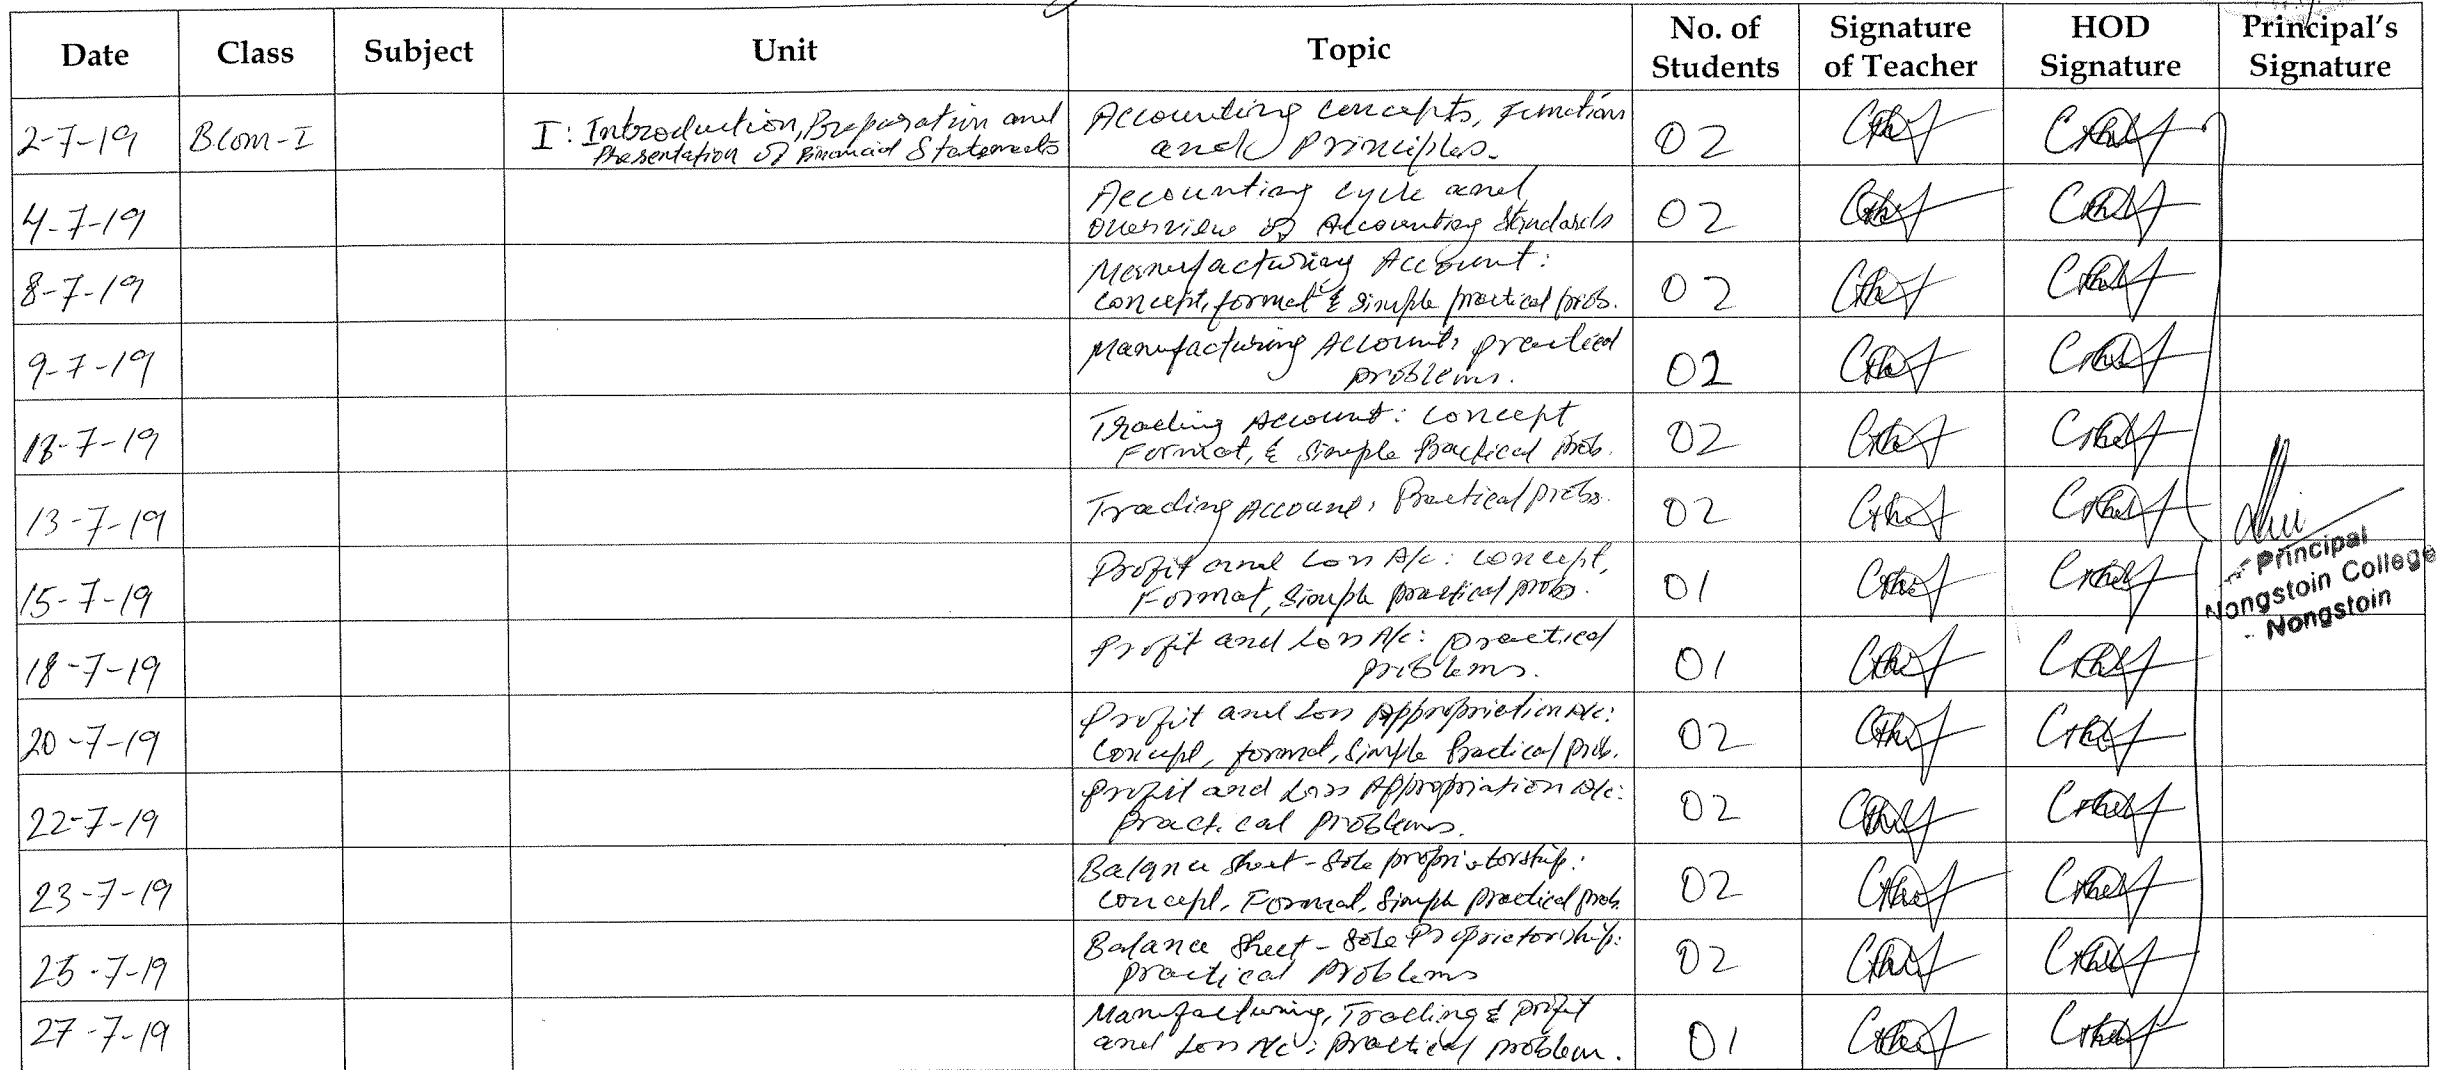 Date Class Subject Unit Topic No. of Students Signature of Teacher HOD Signature Principal's Signature
2-7-19 B.Com-I I: Introduction, Preparation and Accounting concepts, Functions 02
Presentation of Financial Statements and Principles.
4-7-19 Accounting cycle and 02
Overview of Accounting Standards
8-7-19 Manufacturing Account: 02
Concept, format & simple practical prob.
9-7-19 Manufacturing Account: practical 02
problems.
Trading Account: concept 02
-7-19 Format, & simple Practical prob.
13-7-19 Trading Account: Practical probs. 02
15-7-19 Profit and Loss A/c: concept, 01
Format, simple practical probs.
18-7-19 Profit and Loss A/c: practical 01
problems.
20-7-19 Profit and Loss Appropriation A/c: 02
Concept, format, simple Practical prob.
22-7-19 Profit and Loss Appropriation A/c: 02
Practical Problems.
23-7-19 Balance Sheet - Sole proprietorship: 02
Concept, Format, Simple practical prob.
25-7-19 Balance Sheet - Sole Proprietorship: 02
practical Problems
27-7-19 Manufacturing, Trading & profit 01
and Loss A/c: practical problem.
Principal
Nongstoin College
Nongstoin